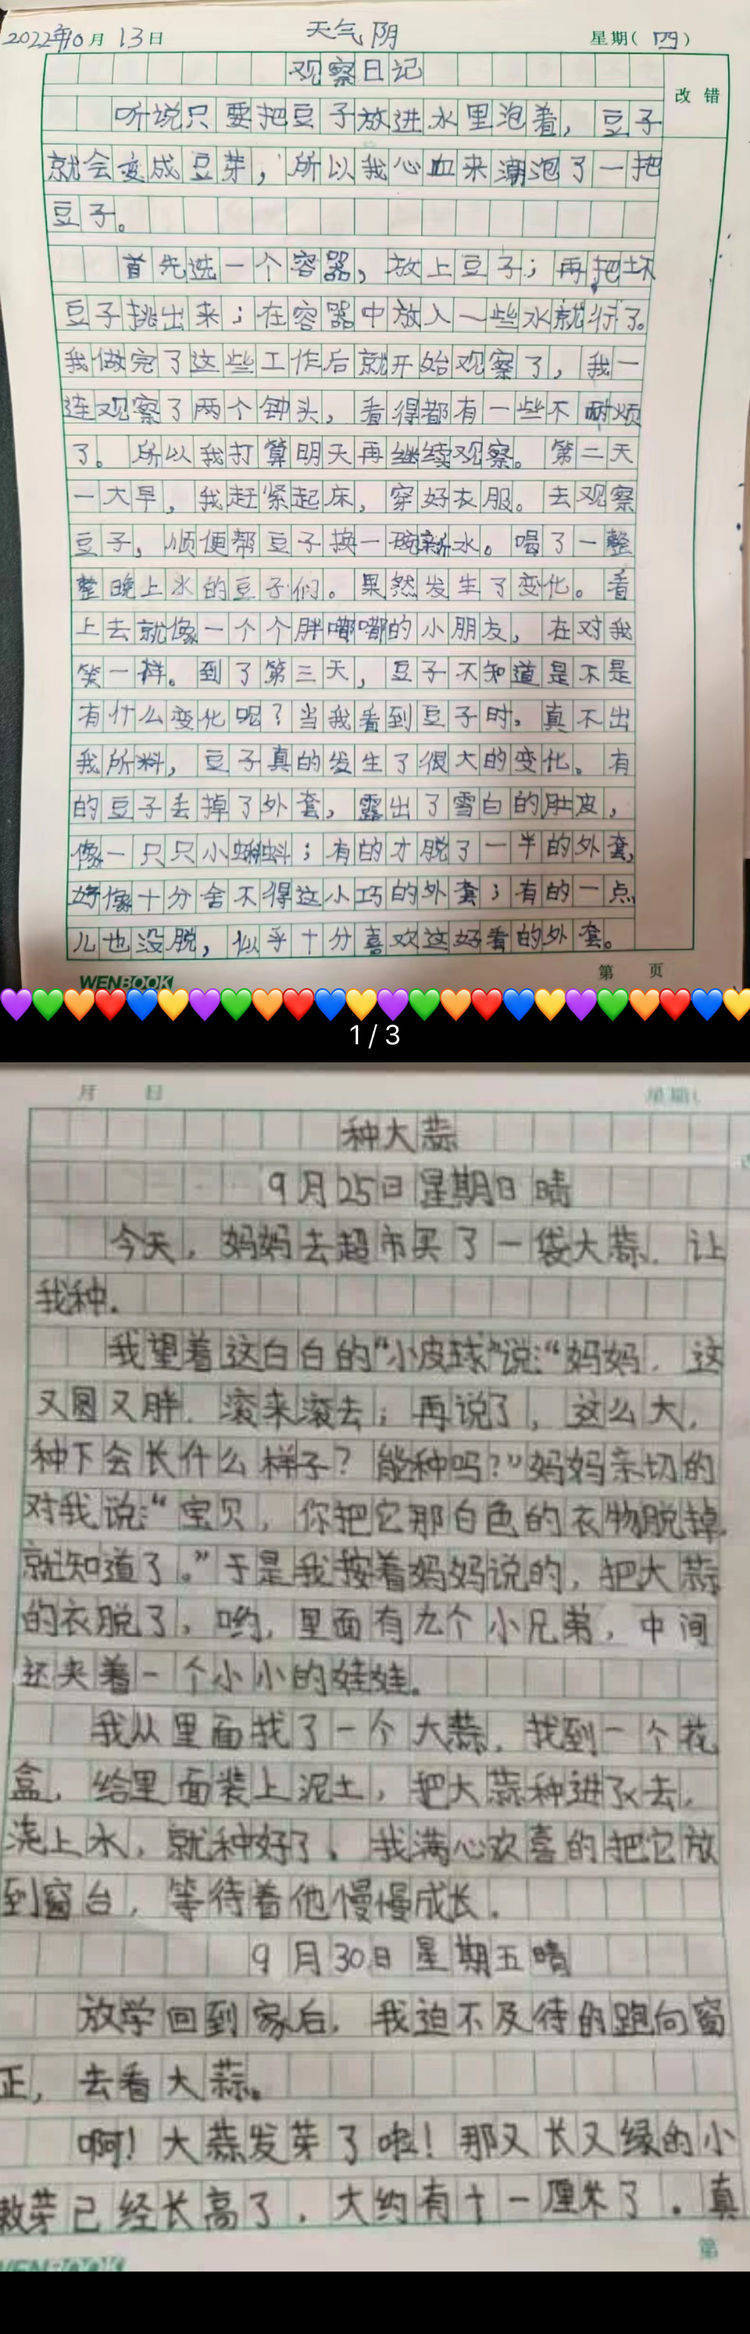 2022年10月13日 天气 阴 星期(四)
观察日记
改错
听说只要把豆子放进水里泡着，豆子
就会变成豆芽，所以我心血来潮泡了一把
豆子。
首先选一个容器，放上豆子；再把坏
豆子挑出来；在容器中放入一些水就行了。
我做完了这些工作后就开始观察了，我一
连观察了两个钟头，看得都有一些不耐烦
了。所以我打算明天再继续观察。第二天
一大早，我赶紧起床，穿好衣服。去观察
豆子，顺便帮豆子换一碗新水。喝了一整
整晚上水的豆子们。果然发生了变化。看
上去就像一个个胖嘟嘟的小朋友，在对我
笑一样。到了第三天，豆子不知道是不是
有什么变化呢？当我看到豆子时，真不出
我所料，豆子真的发生了很大的变化。有
的豆子丢掉了外套，露出了雪白的肚皮，
像一只只小蝌蚪；有的才脱了一半的外套，
好像十分舍不得这小巧的外套；有的一点
儿也没脱，似乎十分喜欢这好看的外套。
WENBOOK 第 页
1/3
月 日 星期(
种大蒜
9月25日星期日 晴
今天，妈妈去超市买了一袋大蒜，让
我种。
我望着这白白的“小皮球”说：“妈妈，这
又圆又胖，滚来滚去；再说了，这么大，
种下会长什么样子？能种吗？”妈妈亲切的
对我说：“宝贝，你把它那白色的衣物脱掉，
就知道了。”于是我按着妈妈说的，把大蒜
的衣脱了，哟，里面有九个小兄弟，中间
还夹着一个小小的娃娃。
我从里面找了一个大蒜，找到一个花
盒，给里面装上泥土，把大蒜种进了去，
浇上水，就种好了。我满心欢喜的把它放
到窗台，等待着他慢慢成长。
9月30日星期五晴
放学回到家后，我迫不及待的跑向窗
正，去看大蒜。
啊！大蒜发芽了啦！那又长又绿的小
嫩芽已经长高了，大约有十一厘米了。真
第